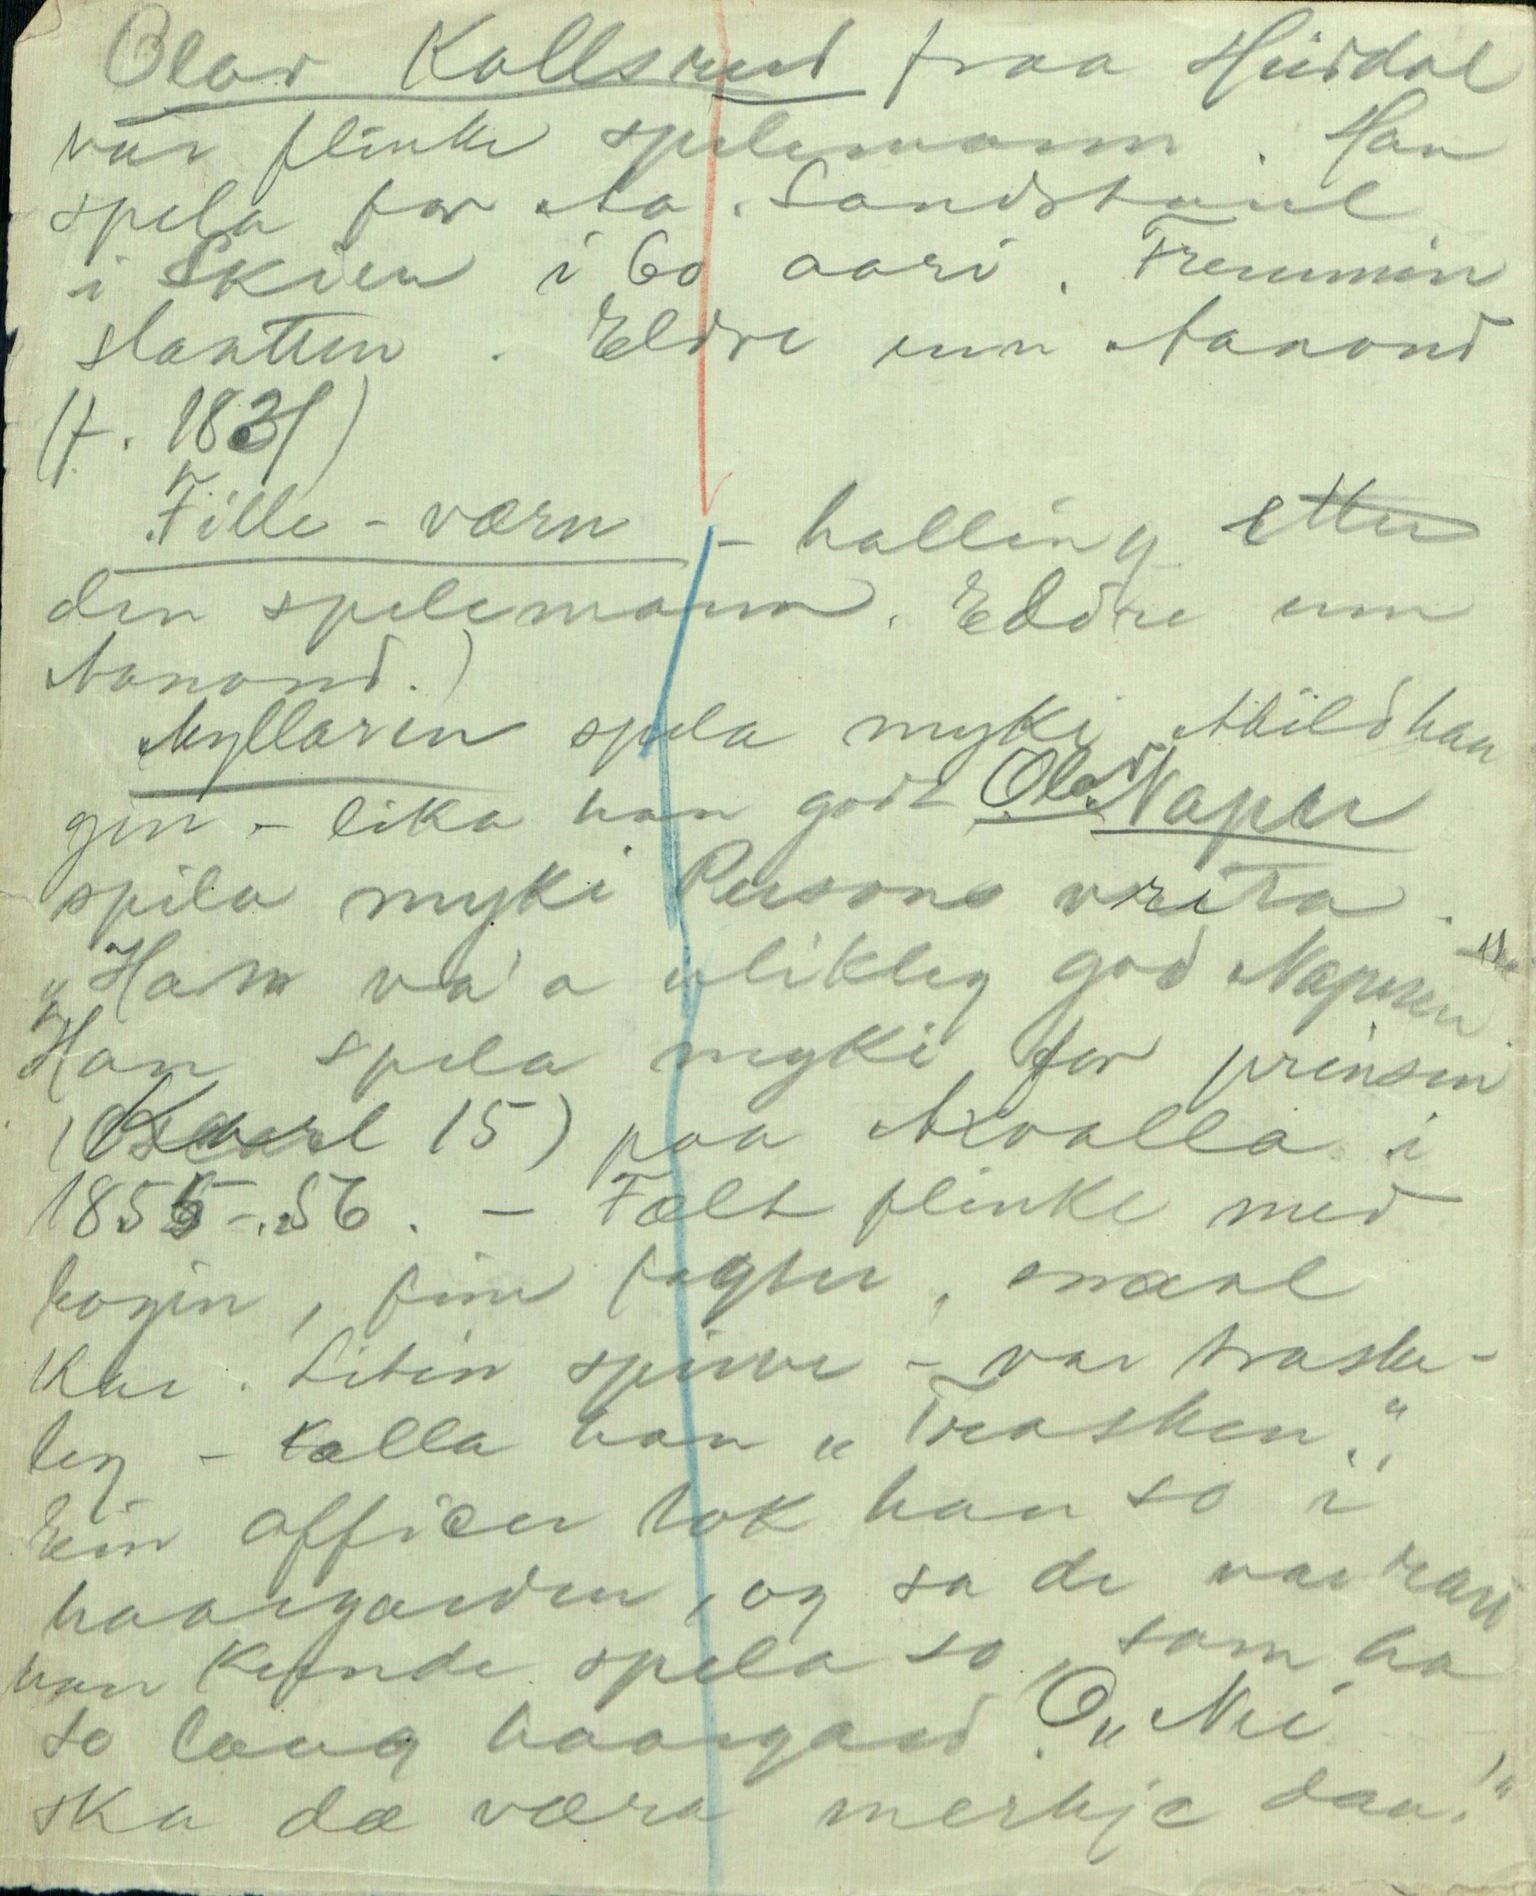 Olav Kallsrud fraa Hiirdal
var flinke spelemann. Han
spela for Aa. Sandstaul
i Skien i 60 aari. Fremmin
slaatten. Eldre enn Aanond
(f. 1831)
Fille-værn - halling etter
den spelemann. Eldre enn
Aanond.)
Myllaren spela myki Mildhaa
gin - lika han godt Ola Naper
spila myki Persons vrita.
„Ham va'a ulikleg god Naperen
Han spela myki for prinsen
(Karl 15) paa Axvalla i
1855-56. - Fælt flinke med
bogin, fine fagter, smaal
Kar. Liten spirve - var traske-
leg - Kalla han „Trasken."
Ein officer tok han so i
haargarden, og sa de var rart
han kunde spela so, som ha
so laang haargard. O„ Nei
ska dæ væra merkje daa!"